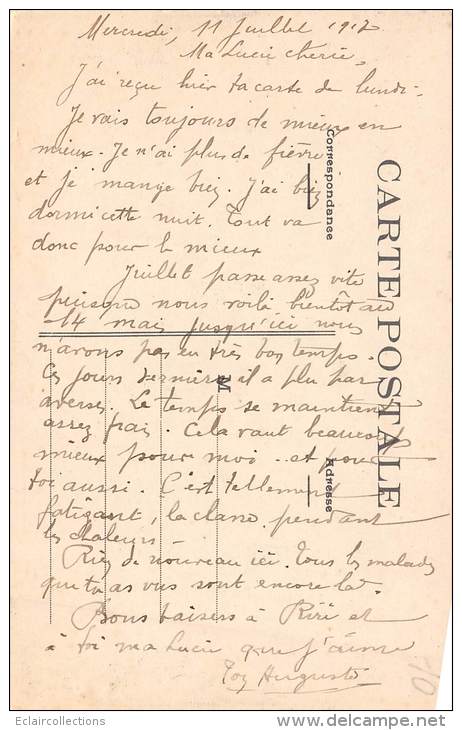 Mercredi, 11 Juillet 1912
Ma Lucie chérie,
J'ai reçu hier ta carte de lundi.
Je vais toujours de mieux en
mieux. Je n'ai plus de fièvre
et je mange bien. J'ai bien
dormi cette nuit. Tout va
donc pour le mieux
Juillet passe assez vite
puisque nous voilà bientôt au
14 mais jusqu'ici nous
n'avons pas eu très bon temps.
Ces jours derniers il a plu par
averses. Le temps se maintient
assez frais. Cela vaut beaucoup
mieux pour moi et pour
toi aussi. C'est tellement
fatigant, la classe pendant
les chaleurs.
Rien de nouveau ici. Tous les malades
que tu as vus sont encore là.
Bons baisers à Riri et
à toi ma Lucie que j'aime
Ton Auguste
CARTE POSTALE
Correspondance
Adresse
M
Eclaircollections